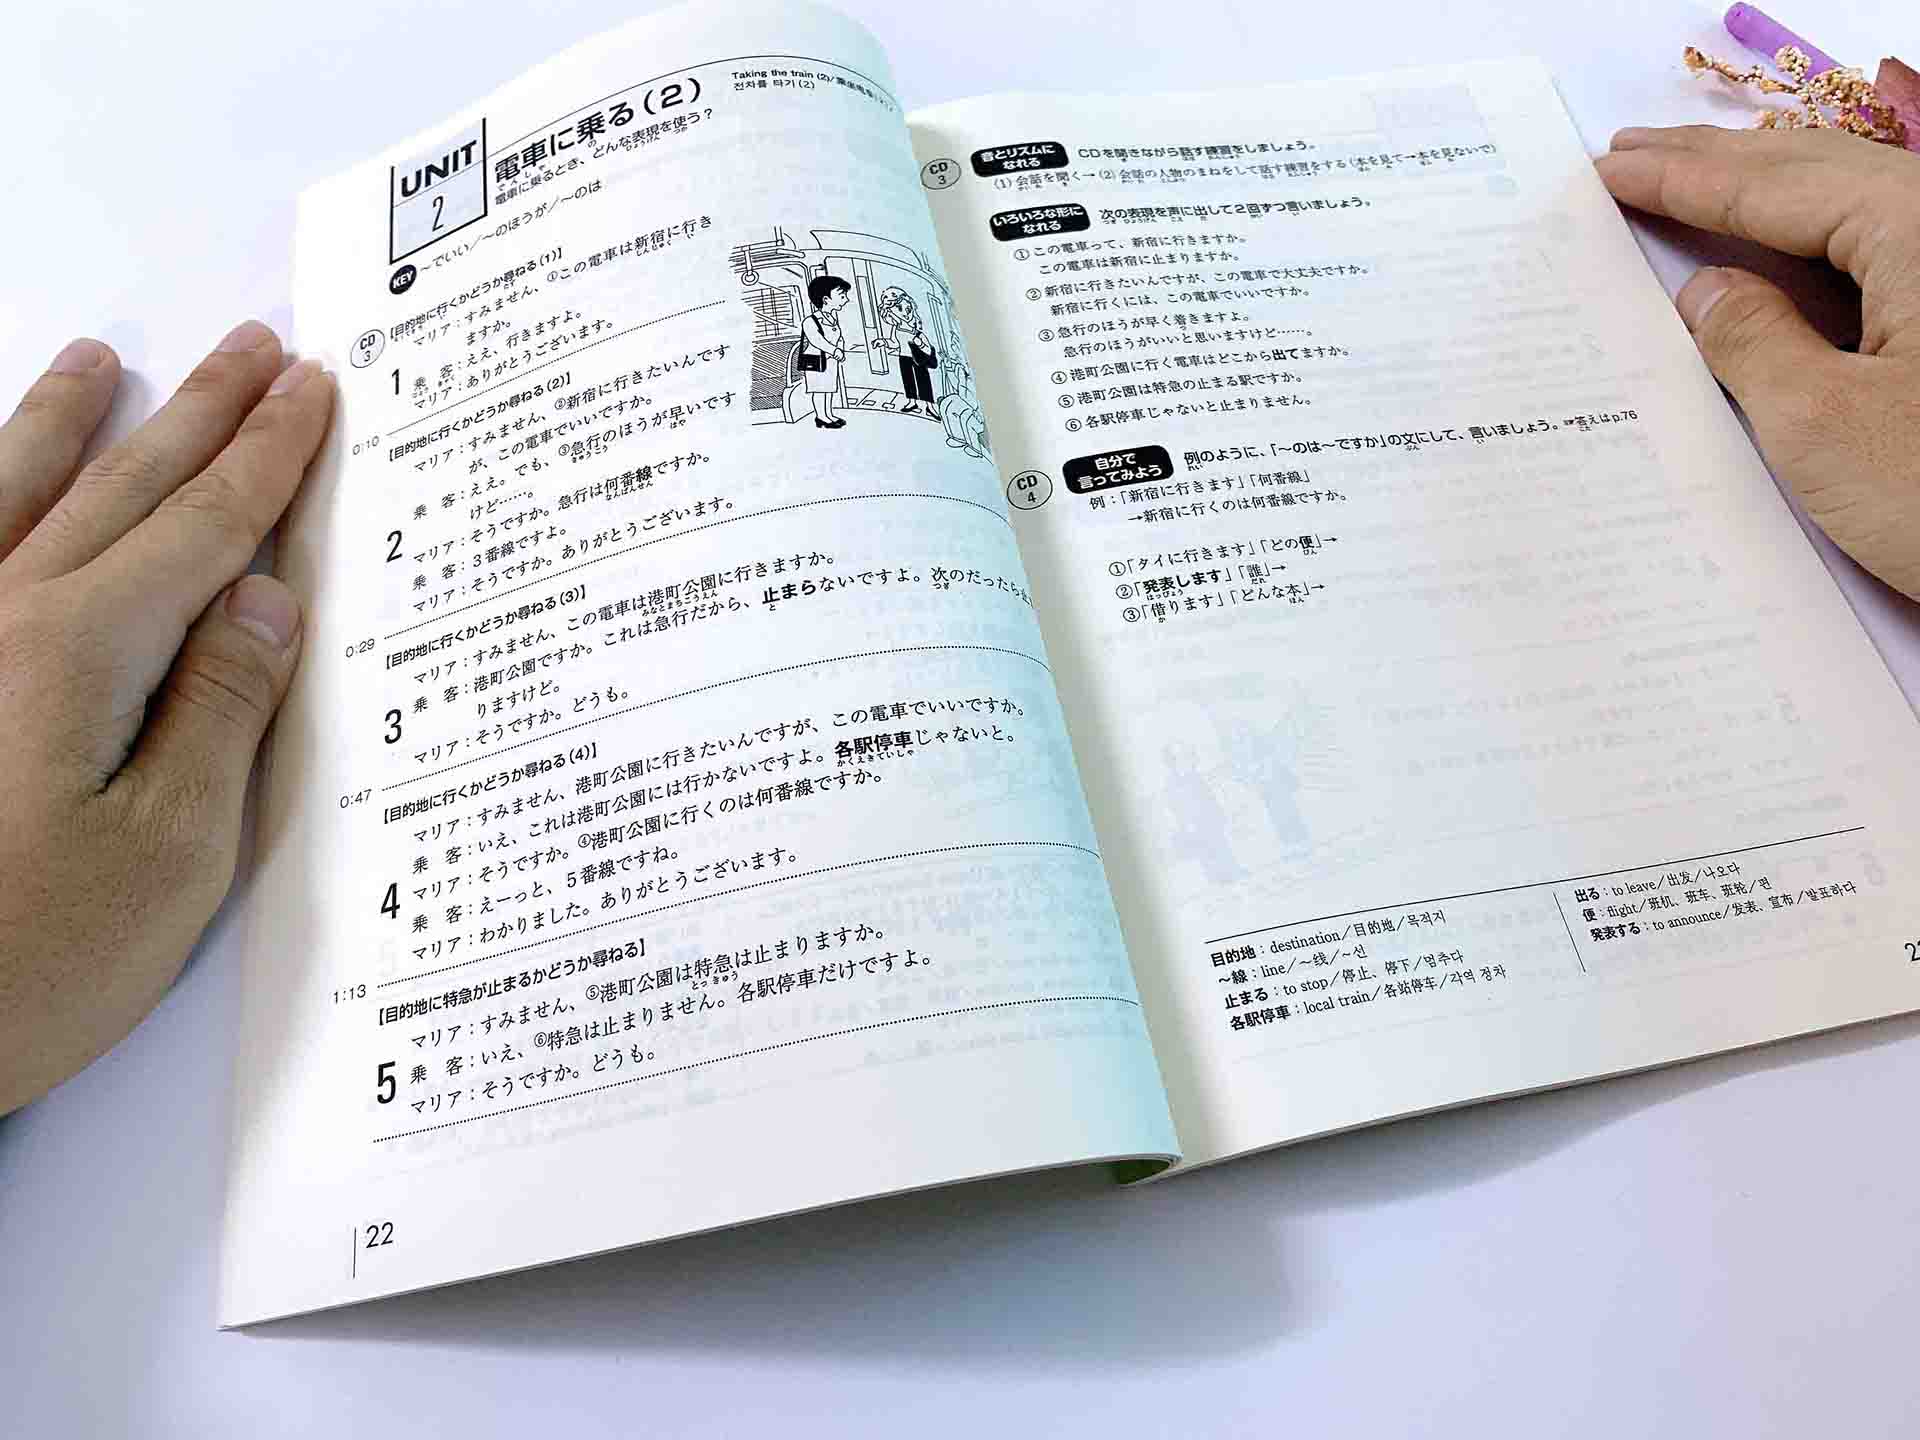 UNIT
2
電車に乗る(2)
でんしゃ の
電車に乗るとき、どんな表現を使う?
ひょうげん つか
Taking the train (2)/乘坐电车(2)/
전차를 타기(2)
KEY ～でいい/～のほうが/～のは
CD
3
【目的地に行くかどうか尋ねる(1)】
1
マリア:すみません、①この電車は新宿に行き
ますか。
乗 客:ええ、行きますよ。
マリア:ありがとうございます。
0:10
【目的地に行くかどうか尋ねる(2)】
2
マリア:すみません、②新宿に行きたいんです
が、この電車でいいですか。
乗 客:ええ。でも、③急行のほうが早いです
けど……。
マリア:そうですか。急行は何番線ですか。
乗 客:3番線ですよ。
マリア:そうですか。ありがとうございます。
0:29
【目的地に行くかどうか尋ねる(3)】
3
マリア:すみません、この電車は港町公園に行きますか。
乗 客:港町公園ですか。これは急行だから、止まらないですよ。次のだったら
りますけど。
マリア:そうですか。どうも。
0:47
【目的地に行くかどうか尋ねる(4)】
4
マリア:すみません、港町公園に行きたいんですが、この電車でいいですか。
乗 客:いえ、これは港町公園には行かないですよ。各駅停車じゃないと。
マリア:そうですか。④港町公園に行くのは何番線ですか。
乗 客:えーっと、5番線ですね。
マリア:わかりました。ありがとうございます。
1:13
【目的地に特急が止まるかどうか尋ねる】
5
マリア:すみません、⑤港町公園は特急は止まりますか。
乗 客:いえ、⑥特急は止まりません。各駅停車だけですよ。
マリア:そうですか。どうも。
22
CD
3
音とリズムに
なれる
CDを聞きながら話す練習をしましょう。
(1)会話を聞く→(2)会話の人物のまねをして話す練習をする(本を見て→本を見ないで)
いろいろな形に
なれる
次の表現を声に出して2回ずつ言いましょう。
①この電車って、新宿に行きますか。
この電車は新宿に止まりますか。
②新宿に行きたいんですが、この電車で大丈夫ですか。
新宿に行くには、この電車でいいですか。
③急行のほうが早く着きますよ。
急行のほうがいいと思いますけど……。
④港町公園に行く電車はどこから出てますか。
⑤港町公園は特急の止まる駅ですか。
⑥各駅停車じゃないと止まりません。
CD
4
自分で
言ってみよう
例のように、「～のは～ですか」の文にして、言いましょう。答えはp.76
例:「新宿に行きます」「何番線」
→新宿に行くのは何番線ですか。
①「タイに行きます」「どの便」→
②「発表します」「誰」→
③「借ります」「どんな本」→
目的地:destination/目的地/목적지
～線:line/～线/～선
止まる:to stop/停止、停下/멈추다
各駅停車:local train/各站停车/각역 정차
出る:to leave/出发/나오다
便:flight/班机、班车、班轮/편
発表する:to announce/发表、宣布/발표하다